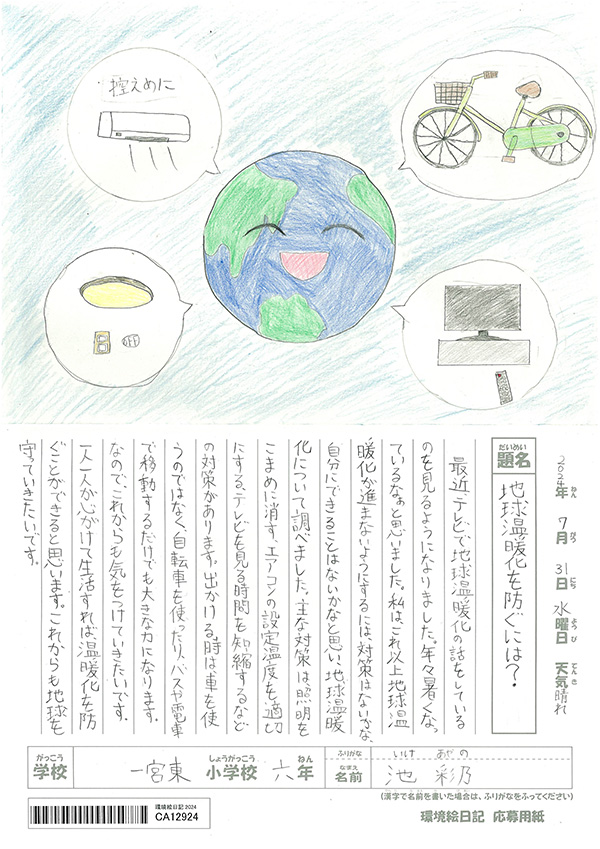 控えめに
OFF
2024年 7月 31日 水曜日 天気 晴れ
ねん がつ にち ようび てんき
だいめい
題名
地球温暖化を防ぐには?
最近、テレビで地球温暖化の話をしている
のを見るようになりました。年々暑くなっ
ているなぁと思いました。私は、これ以上地球温
暖化が進まないようにするには、対策はないかな、
自分にできることはないかなと思い、地球温暖
化について調べました。主な対策は、照明を
こまめに消す、エアコンの設定温度を適切
にする、テレビを見る時間を短縮するなど
の対策があります。出かける時は車を使
うのではなく、自転車を使ったり、バスや電車
で移動するだけでも大きな力になります。
なので、これからも気をつけていきたいです。
一人一人が心がけて生活すれば温暖化を防
ぐことができると思います。これからも地球を
守っていきたいです。
がっこう しょうがっこう ねん ふりがな いけ あやの
学校 一宮東 小学校 六年 なまえ 名前 池 彩乃
(漢字で名前を書いた場合は、ふりがなをふってください)
環境絵日記2024
CA12924
環境絵日記 応募用紙